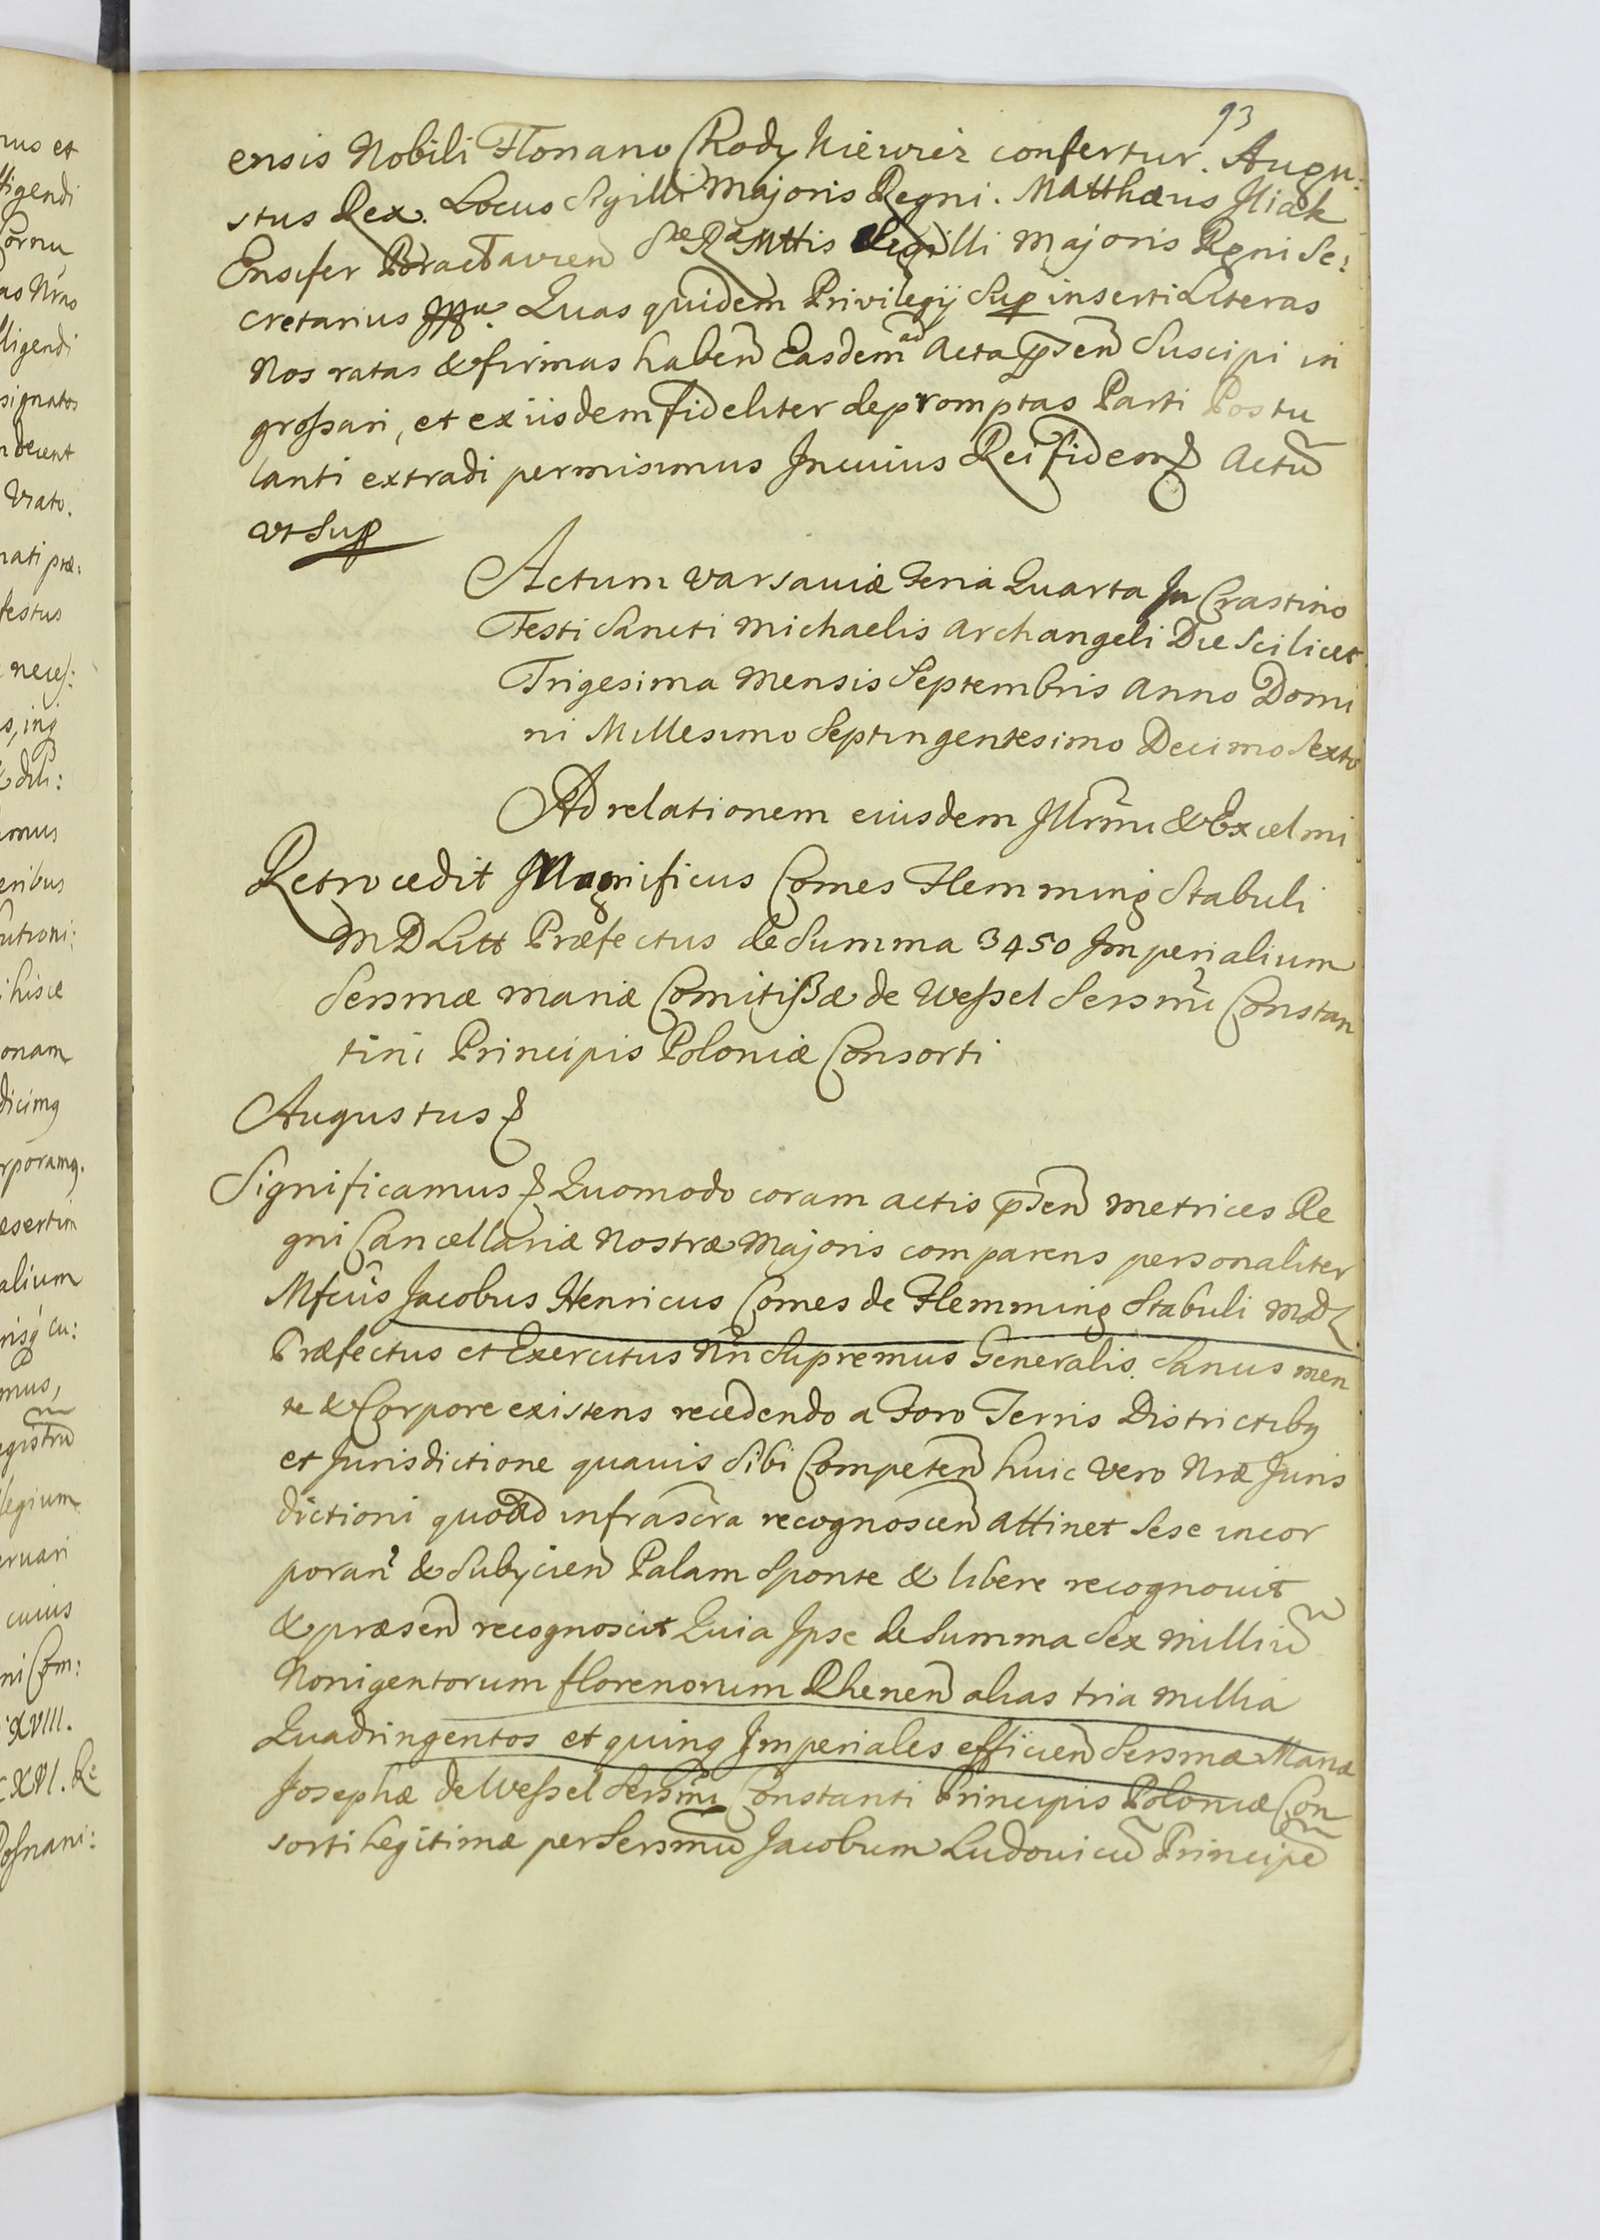 93
ensis Nobili Floriano Chodykiewicz confertur. Augu:
stus Rex. Locus Sigilli Majoris Regni. Matthæus Iliak
Ensifer Braclavien SæRæMttis Sigilli Majoris Regni Se:
cretarius mp. Quas quidem Privilegij Sup insertiLiteras
Nos ratas & firmas haben Easdem ad Acta p̃sen̄ Suscipi in
grossari, et ex iisdem fideliter depromptas Parti Postu
lanti extradi permisimus Incuius Rei fidem Actū
vt Sup
Actum Varsaviæ Feria Quarta In Crastino
Festi Sancti Michaelis Archangeli Die Scilicet
Trigesima Mensis Septembris Anno Domi
ni Millesimo Septingentesimo Decimo Sexto
Ad relationem eiusdem Illrm̄i & Excelmi
Retrocedit Magnificus Comes Flemming Stabuli
MDLitt Præfectus de Summa 3450 Imperialium
Sersmæ Mariæ Comitissæ de Wessel Sersm̄i Constan
tini Principis Poloniæ Consorti
Augustus
Significamus Quomodo coram actis p̃sen̄ Metrices Re
gni Cancellariæ Nostræ Majoris comparens personaliter
Mfcūs Jacobus Henricus Comes de Flemming Stabuli MDL
Præfectus et Exercitus Nrī Supremus Generalis. Sanus men
te & Corpore existens recedendo a Foro Terris Districtibq
et Jurisdictione quavis Sibi Competen̄ huic vero Nræ Juris
dictioni quoad infrascra recognoscen̄ attinet Sese incor
poran̄ & Subijcien̄ Palam Sponte & libere recognovit
& præsen̄ recognoscit Quia Ipse de Summa Sex milliū
Nonigentorum florenorum Rhenen̄ alias tria millia
Quadringentos et quinq Imperiales efficien̄ Sersmæ Mariæ
Josephæ de Wessel Sersm̄i Constanti Principis Poloniæ Con
sorti Legitimæ per Sersmū Jacobum Ludovicū Principē